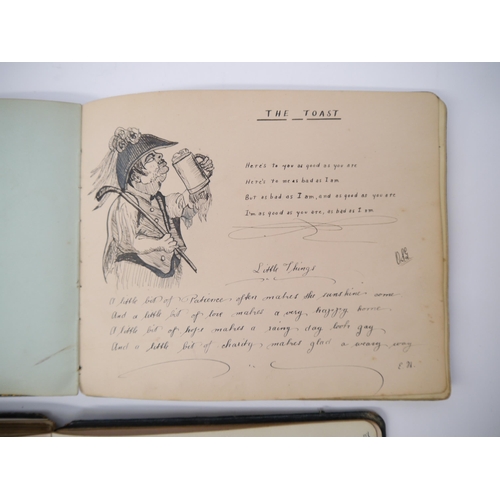 THE TOAST
Here's to you as good as you are
Here's to me as bad as I am
But as bad as I am, and as good as you are
I'm as good as you are, as bad as I am
Little Things
A little bit of Patience often makes the sunshine come
And a little bit of love makes a very happy home
A little bit of hope makes a rainy day look gay
And a little bit of charity, makes glad a weary way